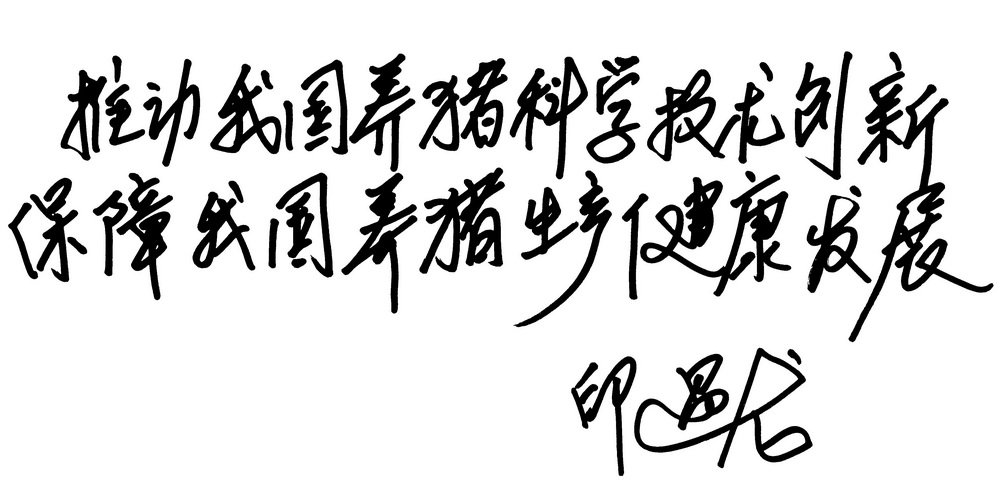 推动我国养猪科学技术创新
保障我国养猪生产健康发展
印遇龙